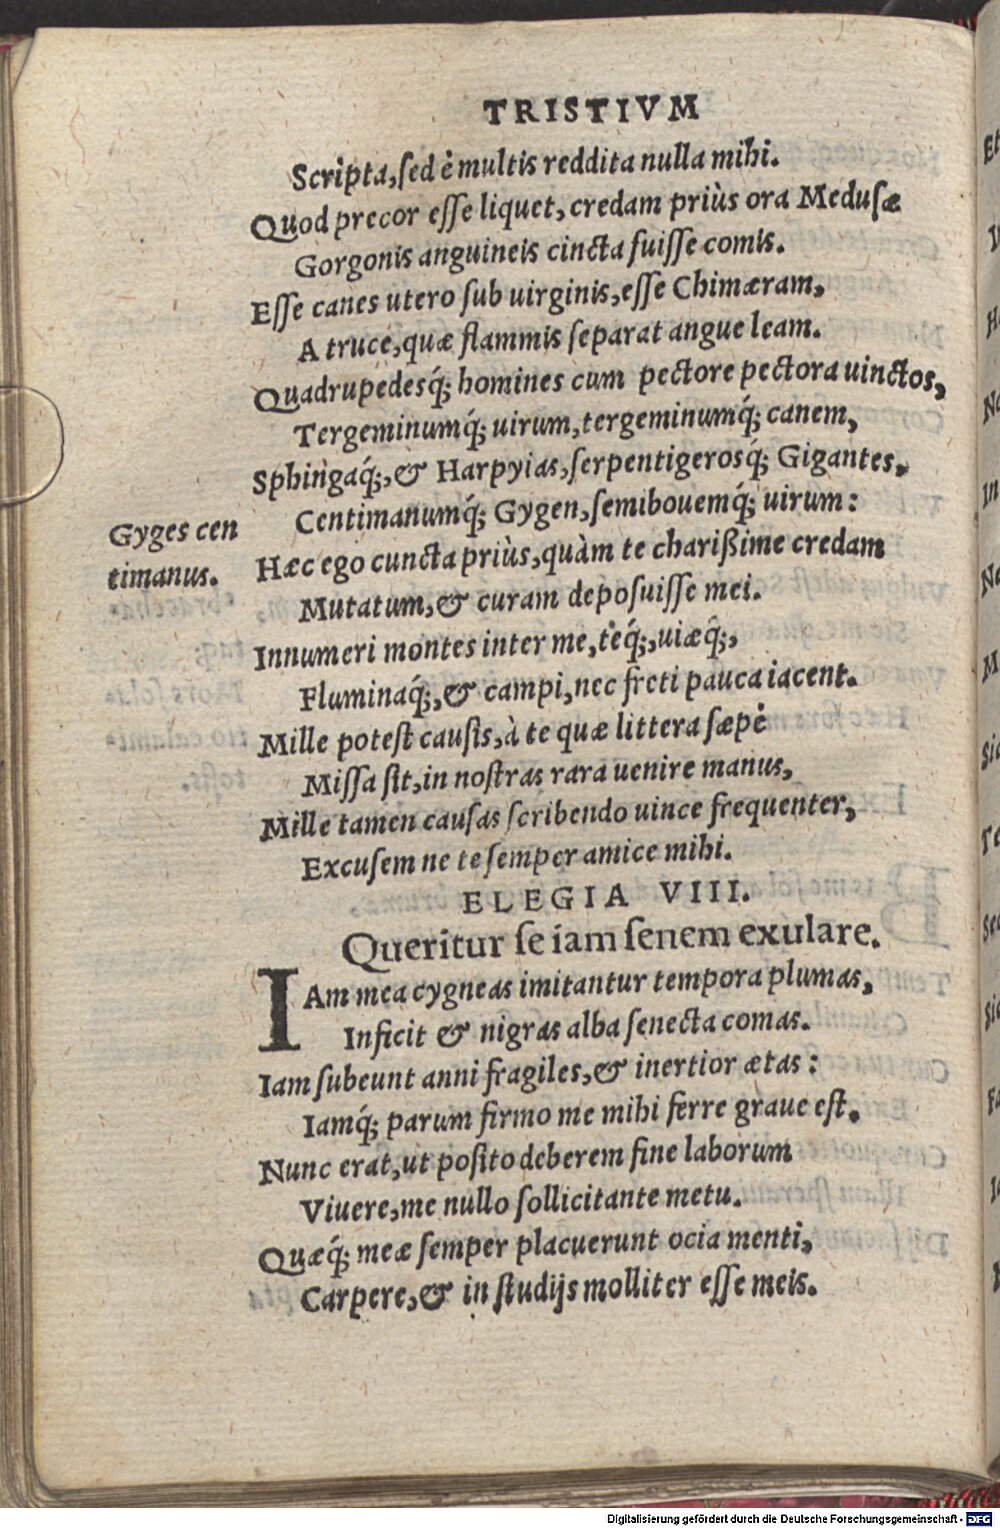 TRISTIVM
Scripta, sed è multis reddita nulla mihi.
Quod precor esse liquet, credam priùs ora Medusæ
Gorgonis anguineis cincta fuisse comis.
Esse canes utero sub uirginis, esse Chimæram,
A truce, quæ flammis separat angue leam.
Quadrupedesq́; homines cum pectore pectora uinctos,
Tergeminumq́; uirum, tergeminumq́; canem,
Sphingaq́;, & Harpyias, serpentigerosq́; Gigantes,
Centimanumq́; Gygen, semibouemq́; uirum:
Gyges cen
timanus.
Hæc ego cuncta priùs, quàm te charißime credam
Mutatum, & curam deposuisse mei.
Innumeri montes inter me, teq́;, uiæq́;,
Fluminaq́;, & campi, nec freti pauca iacent.
Mille potest causis, à te quæ littera sæpè
Missa sit, in nostras rara uenire manus,
Mille tamen causas scribendo uince frequenter,
Excusem ne te semper amice mihi.
ELEGIA VIII.
Queritur se iam senem exulare.
IAm mea cygneas imitantur tempora plumas,
Inficit & nigras alba senecta comas.
Iam subeunt anni fragiles, & inertior ætas:
Iamq́; parum firmo me mihi ferre graue est.
Nunc erat, ut posito deberem fine laborum
Viuere, me nullo sollicitante metu.
Quæq́; meæ semper placuerunt ocia menti,
Carpere, & in studijs molliter esse meis.
Digitalisierung gefördert durch die Deutsche Forschungsgemeinschaft - DFG